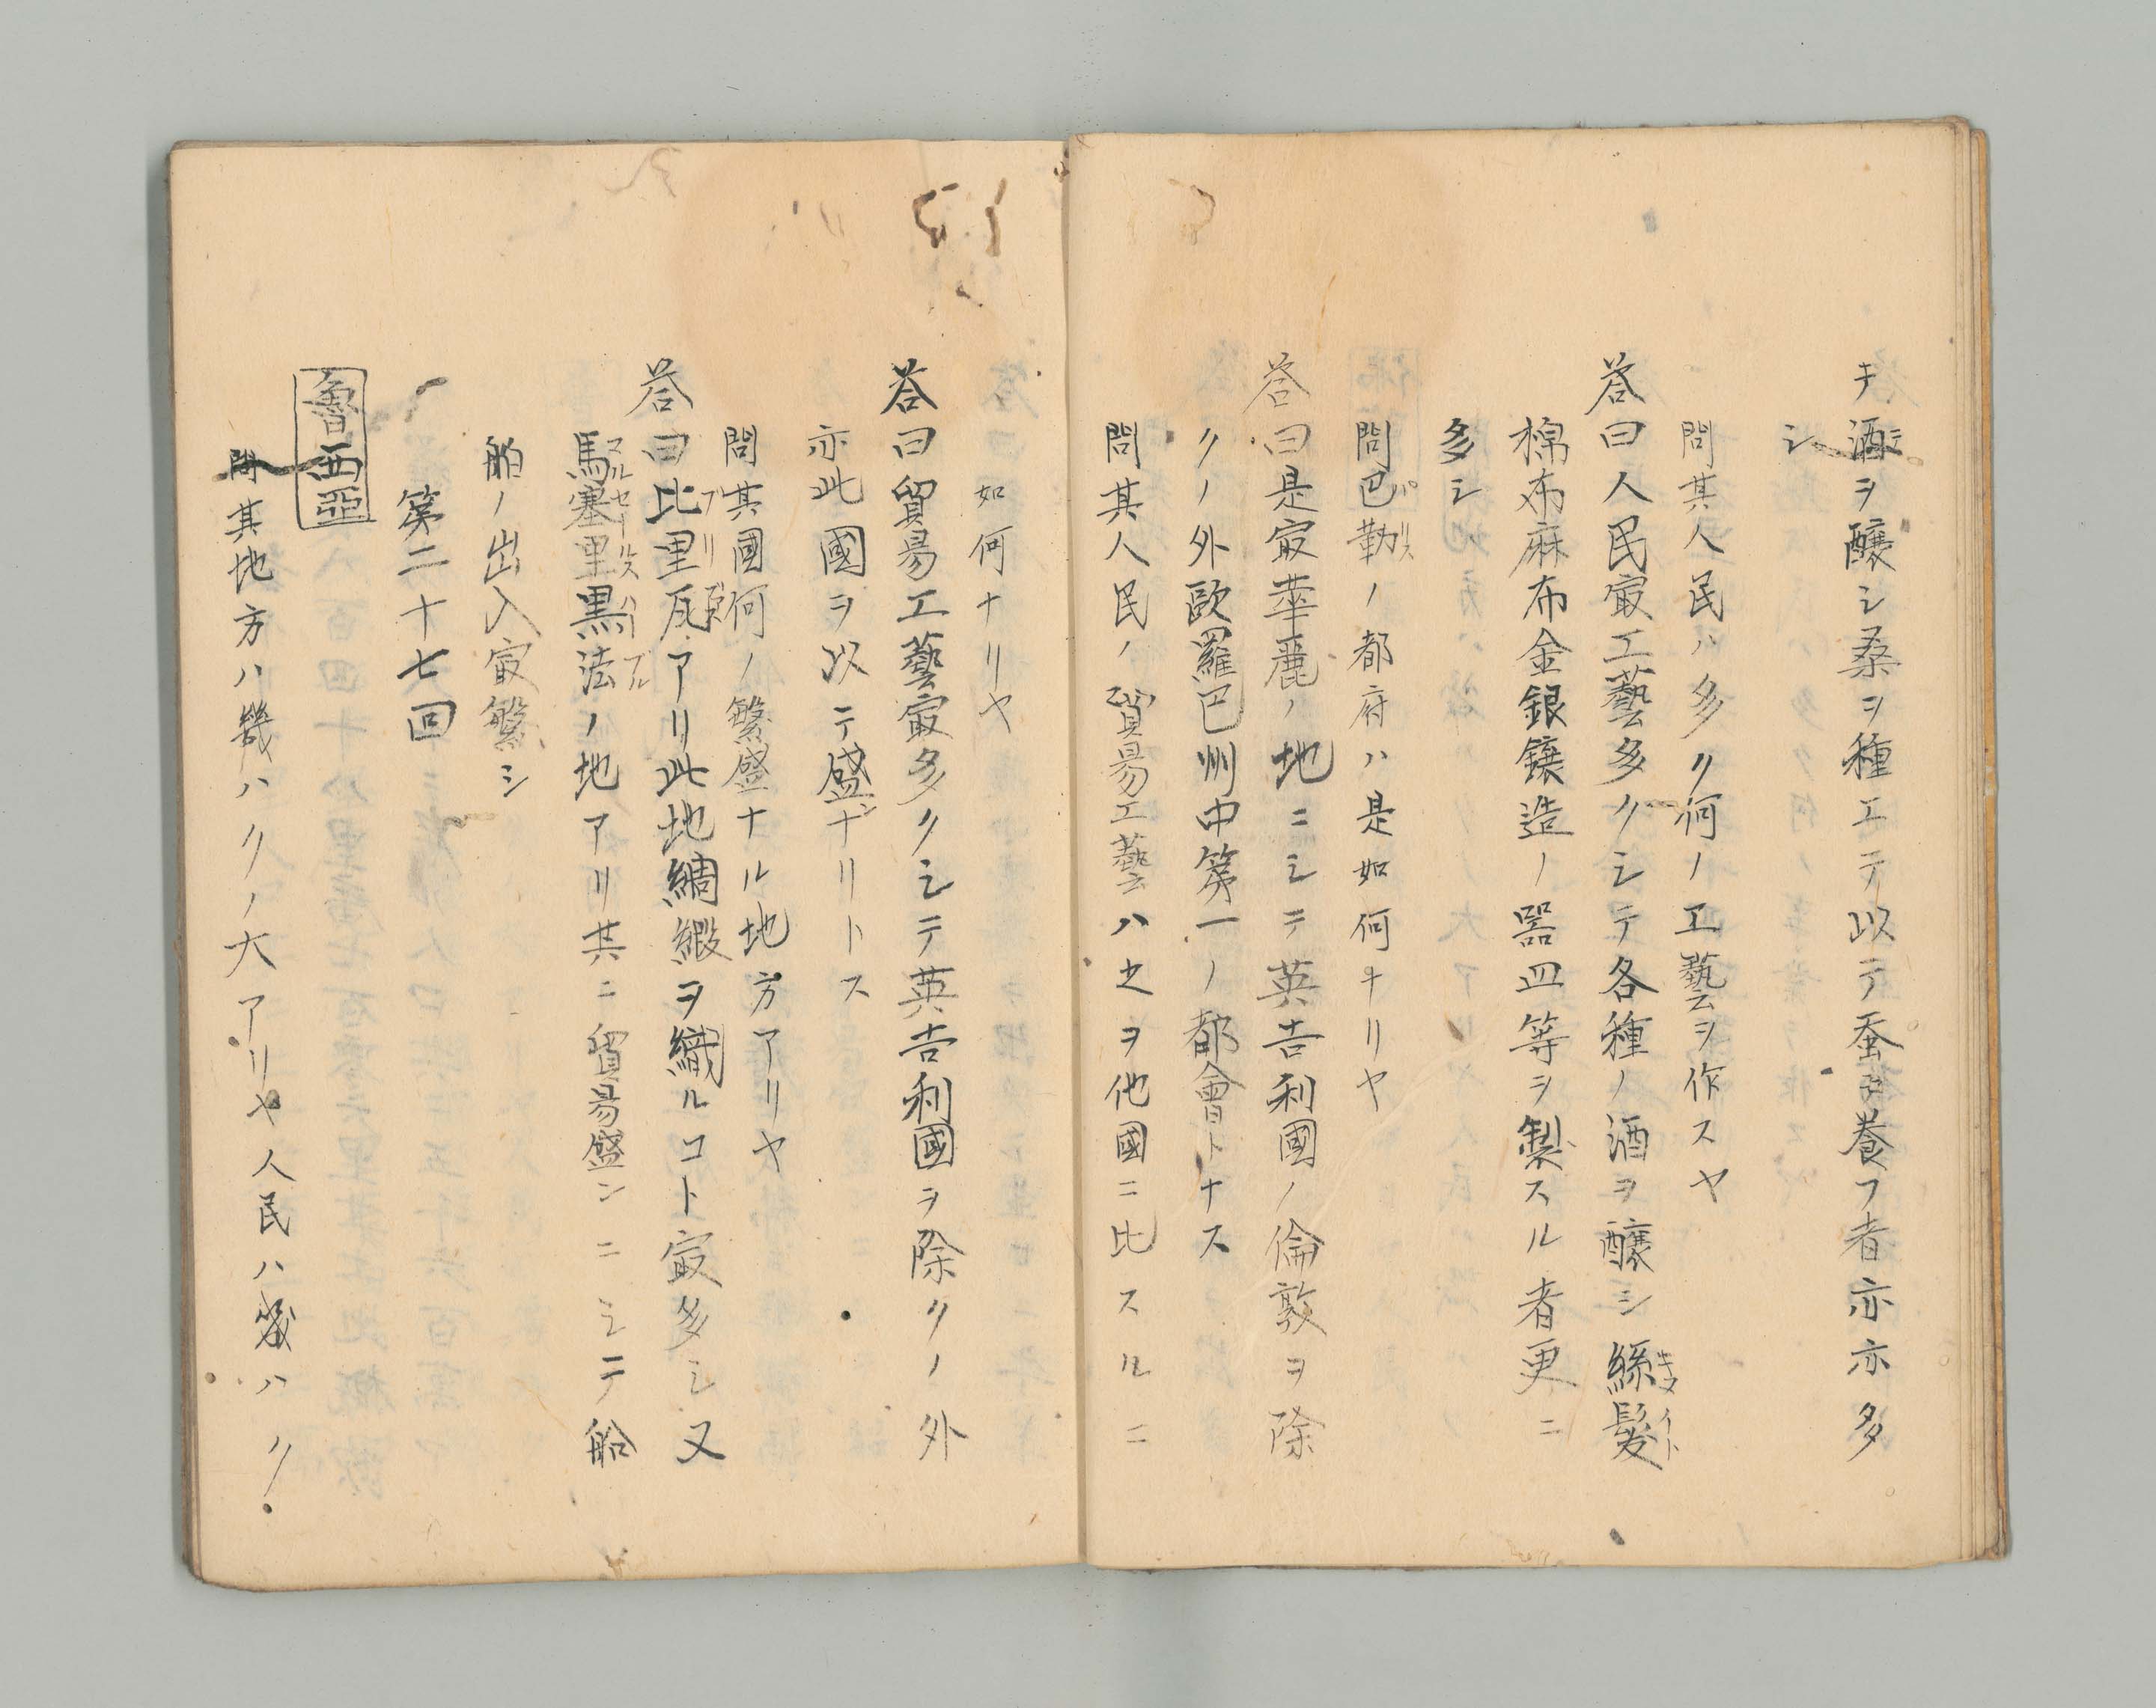 キ酒ヲ釀シ桑ヲ種エテ以テ蚕ヲ養フ者亦亦多
シ
問其人民ハ多ク何ノ工藝ヲ作スヤ
答曰人民㝡工藝多クシテ各種ノ酒ヲ釀シ絲髪
棉布麻布金銀鑲造ノ器皿等ヲ製スル者更ニ
多シ
問巴勒ノ都府ハ是如何ナリヤ
答曰是㝡華麗ノ地ニシテ英吉利國ノ倫敦ヲ除
クノ外歐羅巴州中第一ノ都會トナス
問其人民ノ貿易工藝ハ之ヲ他國ニ比スルニ
如何ナリヤ
答曰貿易工藝㝡多クシテ英吉利國ヲ除クノ外
亦此國ヲ以テ盛ンナリトス
問其國何ノ繁盛ナル地方アリヤ
答曰比里瓦アリ此地綢緞ヲ織ルコト㝡多シ又
馬塞里黒法ノ地アリ其ニ貿易盛ンニシテ船
舶ノ出入㝡繁シ
第二十七回
魯西亞
問其地方ハ幾ハクノ大アリヤ人民ハ幾ハク